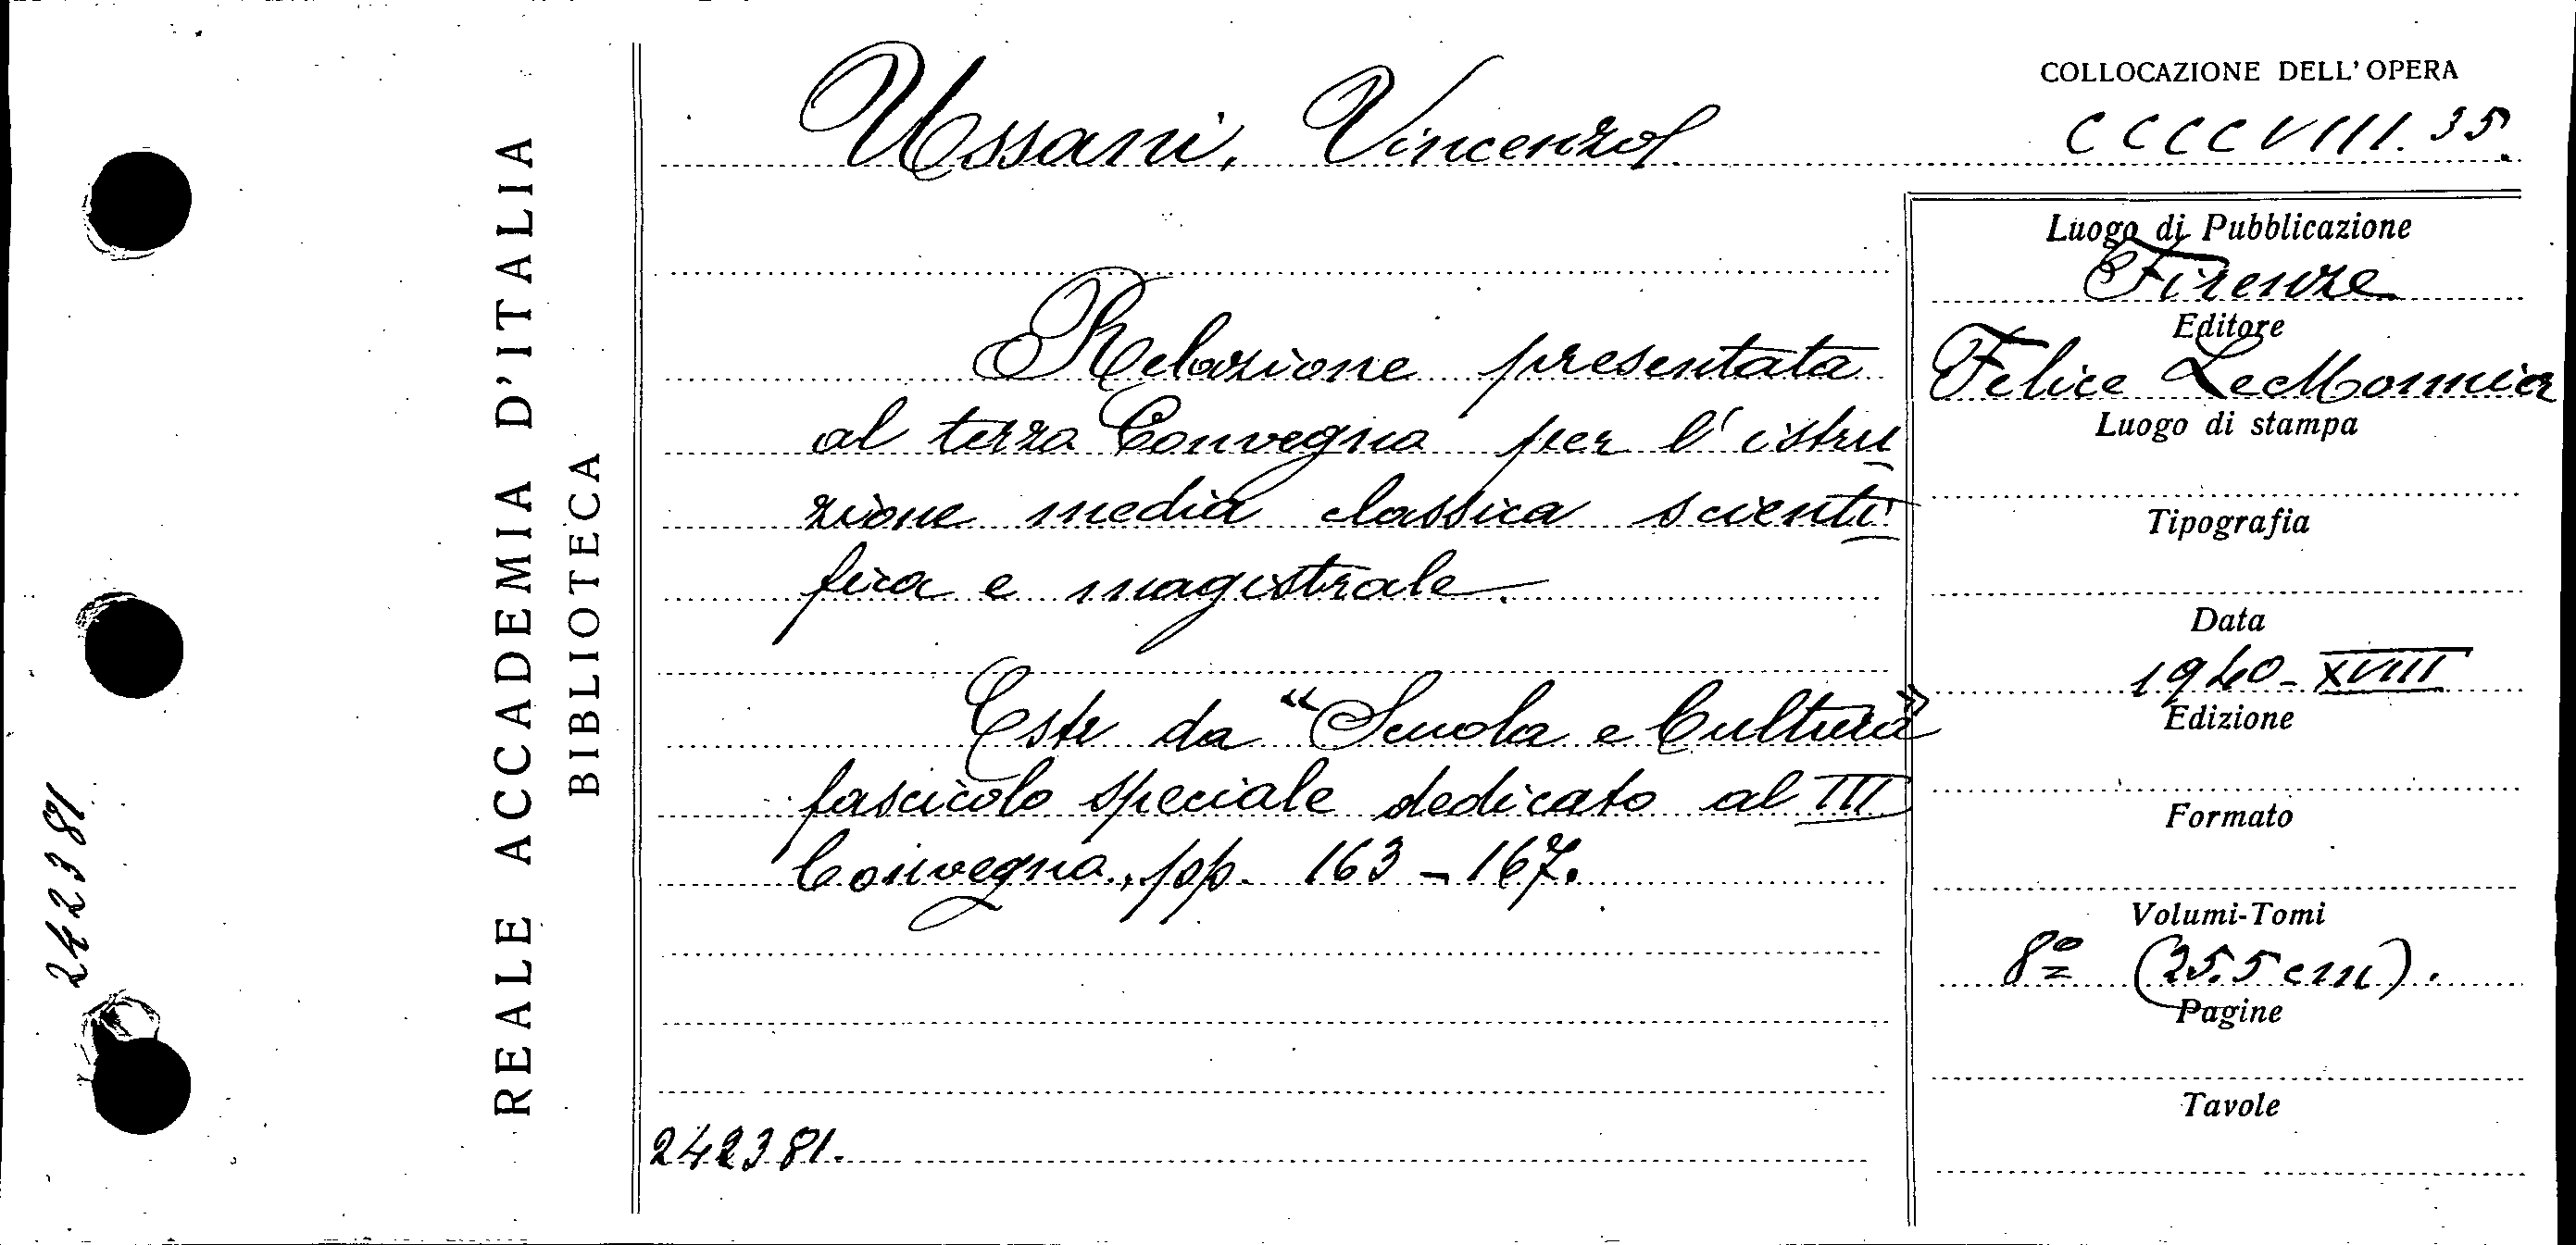 242381
REALE ACCADEMIA D'ITALIA
BIBLIOTECA
Ussani, Vincenzo
Relazione presentata
al terzo Convegno per l'istru
zione media classica scienti
fica e magistrale.
Estr da "Scuola e Cultura"
fascicolo speciale dedicato al III
Convegno, pp. 163-167.
242381.
COLLOCAZIONE DELL'OPERA
CCCCVIII.35.
Luogo di Pubblicazione
Firenze
Editore
Felice Le Monnier
Luogo di stampa
Tipografia
Data
1940-XVIII
Edizione
Formato
Volumi-Tomi
8º (25.5 cm).
Pagine
Tavole